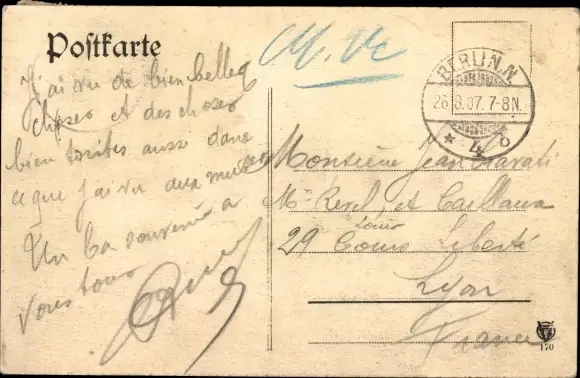 Postkarte
J'ai vu de bien belles
choses et des choses
bien tristes aussi dans
ce que j'ai vu aux musées
Un bon souvenir à
vous tous
BERLIN.N.
26.8.07. 7-8N.
* 4 b
Monsieur Jean
Mrs et Caillava
29 Cours Liberté
Lyon
France
170